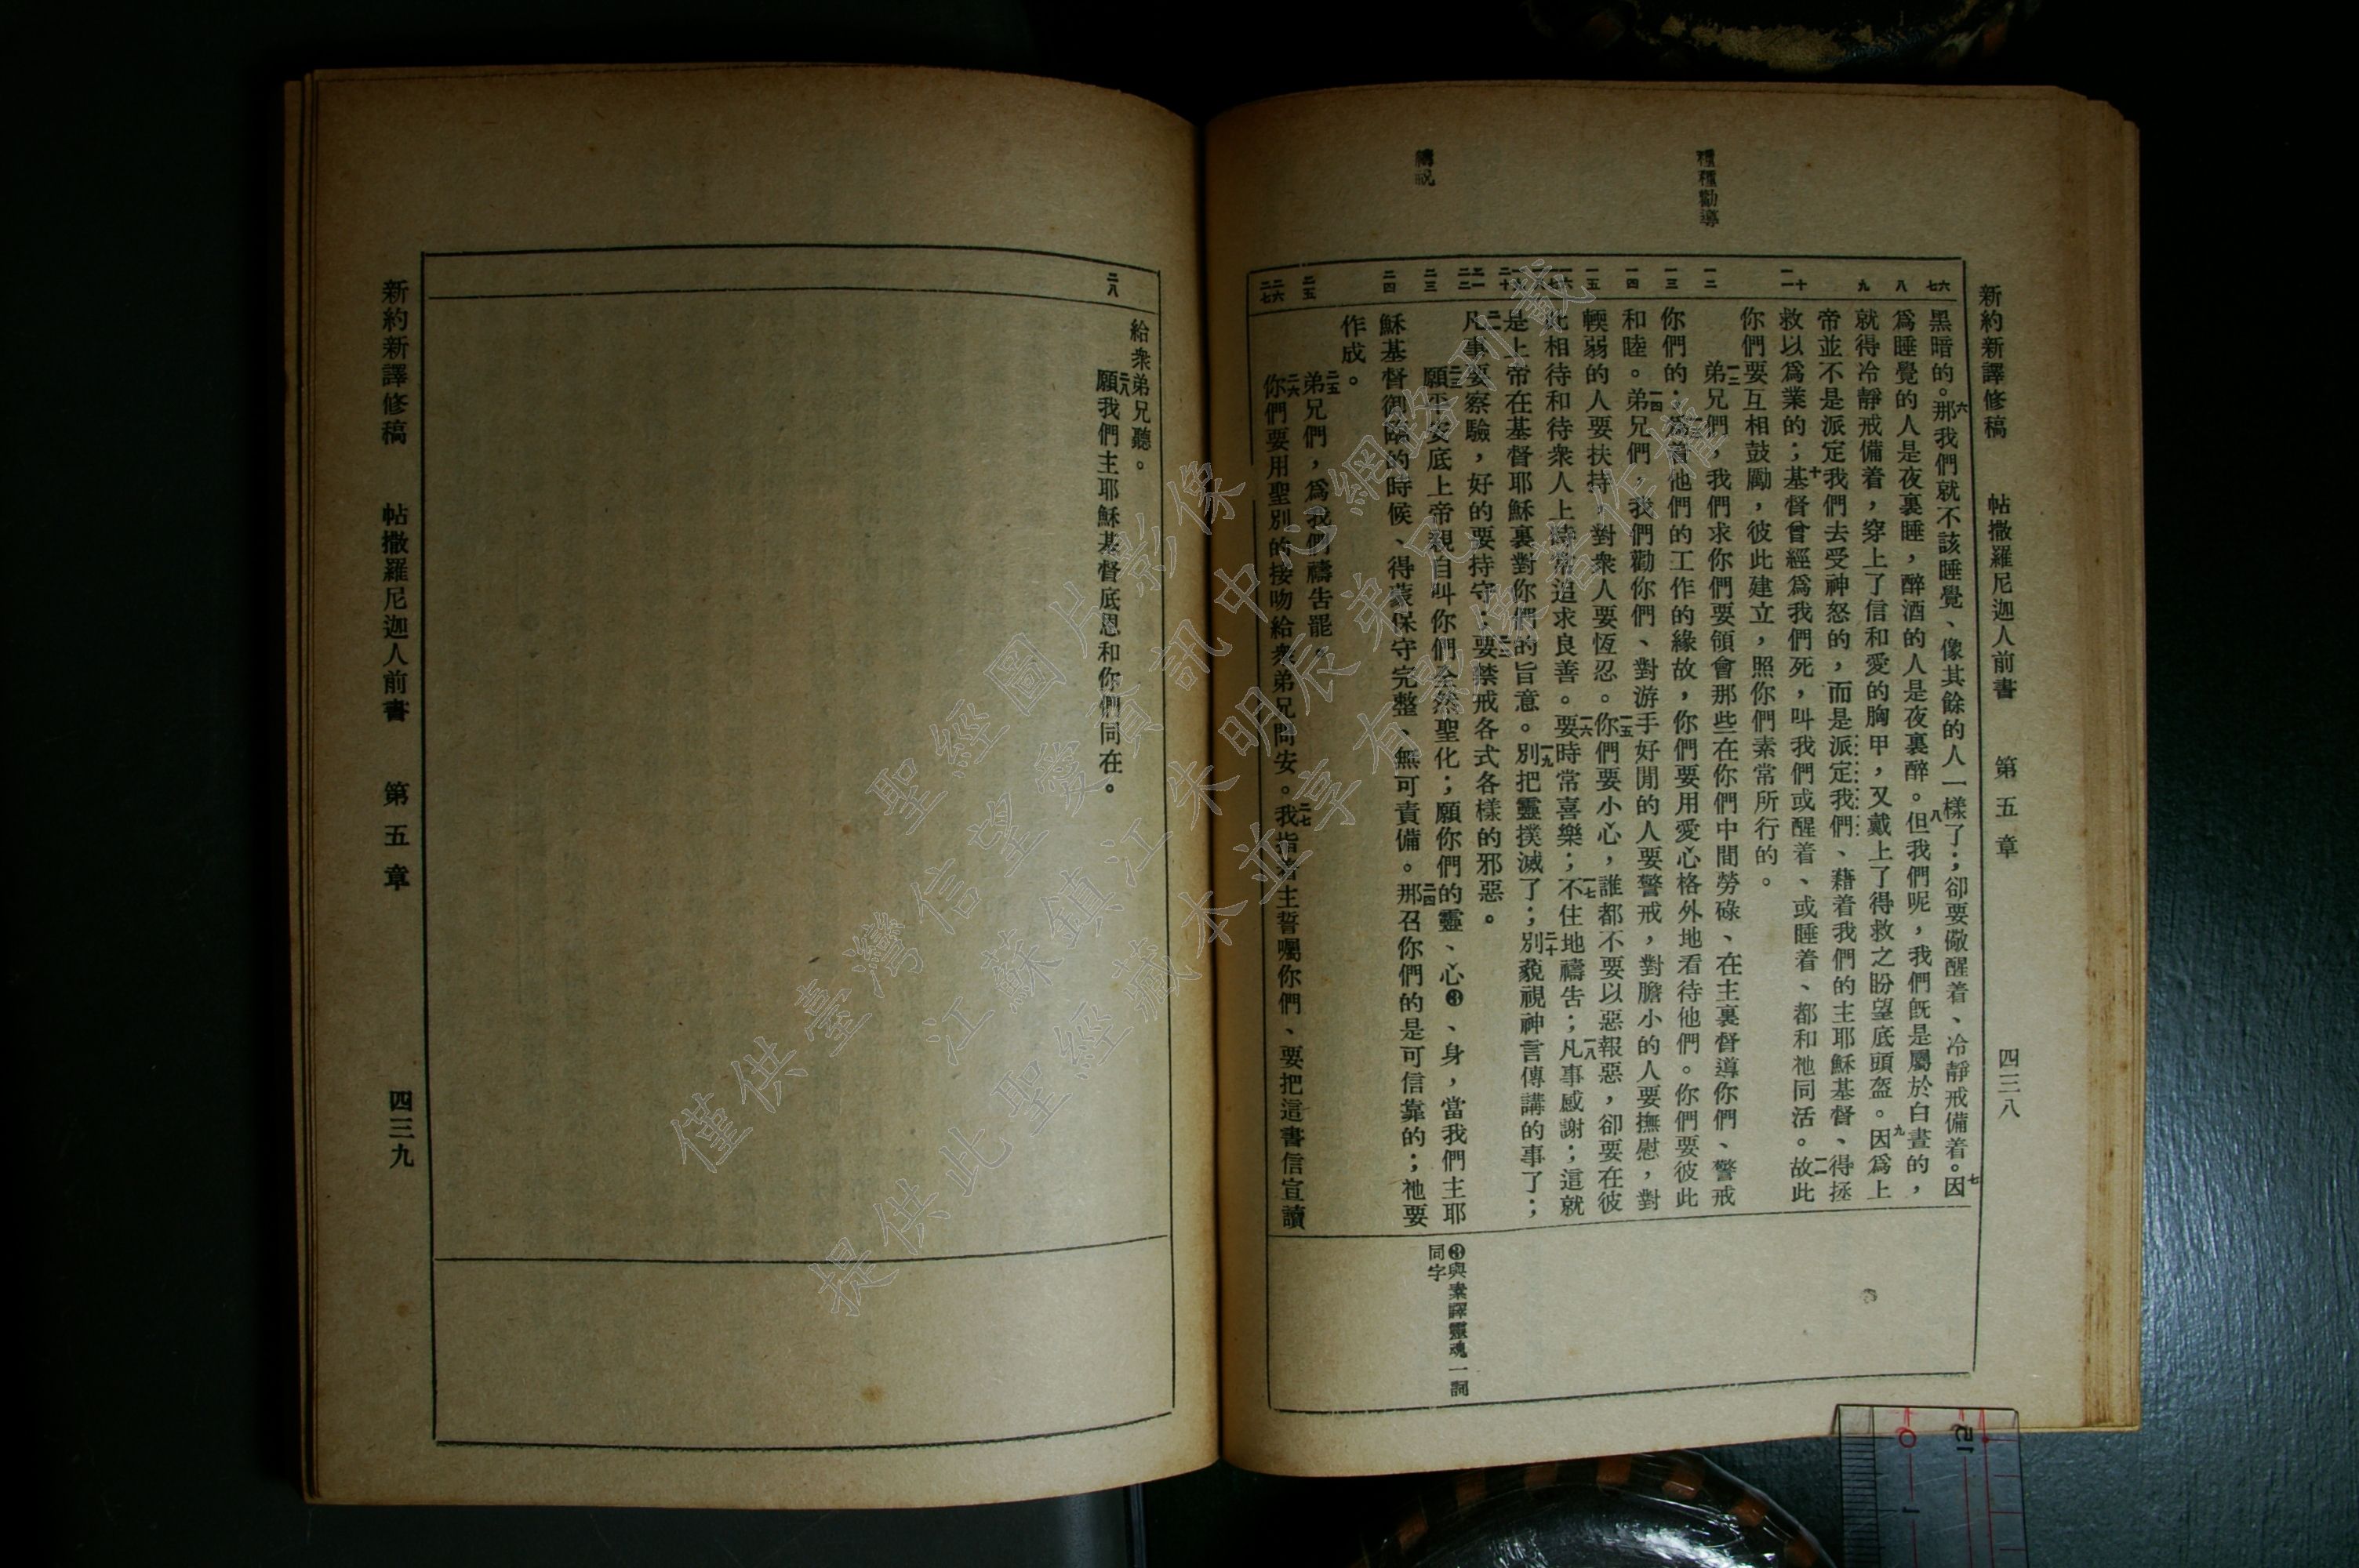 新約新譯修稿 帖撒羅尼迦人前書 第五章 四三八
種種勸導
禱祝
六七 八 九 十一一 一二 一三 一四 一五 一六一七一八 一九二十 二一二二 二三 二四 二五 二六二七
黑暗的。六那我們就不該睡覺、像其餘的人一樣了；卻要儆醒着、冷靜戒備着。七因
爲睡覺的人是夜裏睡，醉酒的人是夜裏醉。八但我們呢，我們既是屬於白晝的，
就得冷靜戒備着，穿上了信和愛的胸甲，又戴上了得救之盼望底頭盔。九因爲上
帝並不是派定我們去受神怒的，而是派定我們、藉着我們的主耶穌基督、得拯
救以爲業的；十基督曾經爲我們死，叫我們或醒着、或睡着、都和祂同活。一一故此
你們要互相鼓勵，彼此建立，照你們素常所行的。
一二弟兄們，我們求你們要領會那些在你們中間勞碌、在主裏督導你們、警戒
你們的；一三爲着他們的工作的緣故，你們要用愛心格外地看待他們。你們要彼此
和睦。一四弟兄們，我們勸你們、對游手好閒的人要警戒，對膽小的人要撫慰，對
輭弱的人要扶持，對衆人要恆忍。一五你們要小心，誰都不要以惡報惡，卻要在彼
此相待和待衆人上時常追求良善。一六要時常喜樂；一七不住地禱告；一八凡事感謝；這就
是上帝在基督耶穌裏對你們的旨意。一九別把靈撲滅了；二十別藐視神言傳講的事了；
二一凡事要察驗，好的要持守；二二要禁戒各式各樣的邪惡。
二三願平安底上帝親自叫你們全然聖化；願你們的靈、心❸、身，當我們主耶
穌基督御臨的時候、得蒙保守完整、無可責備。二四那召你們的是可信靠的；祂要
作成。
二五弟兄們，爲我們禱告罷。
二六你們要用聖別的接吻給衆弟兄問安。二七我指着主誓囑你們、要把這書信宣讀
❸與素譯靈魂一詞
同字
二八
給衆弟兄聽。
二八願我們主耶穌基督底恩和你們同在。
新約新譯修稿 帖撒羅尼迦人前書 第五章 四三九
聖經圖片影像
僅供臺灣信望愛資訊中心網路刊載
江蘇鎮江朱明辰弟兄
提供此聖經藏本並享有影像著作權